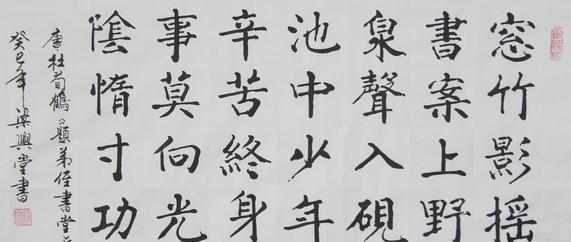 窓竹影摇
書案上野
泉聲入硯
池中少年
辛苦終身
事莫向光
陰惰寸功
唐杜荀鶴題弟侄書堂
癸巳年梁興堂書